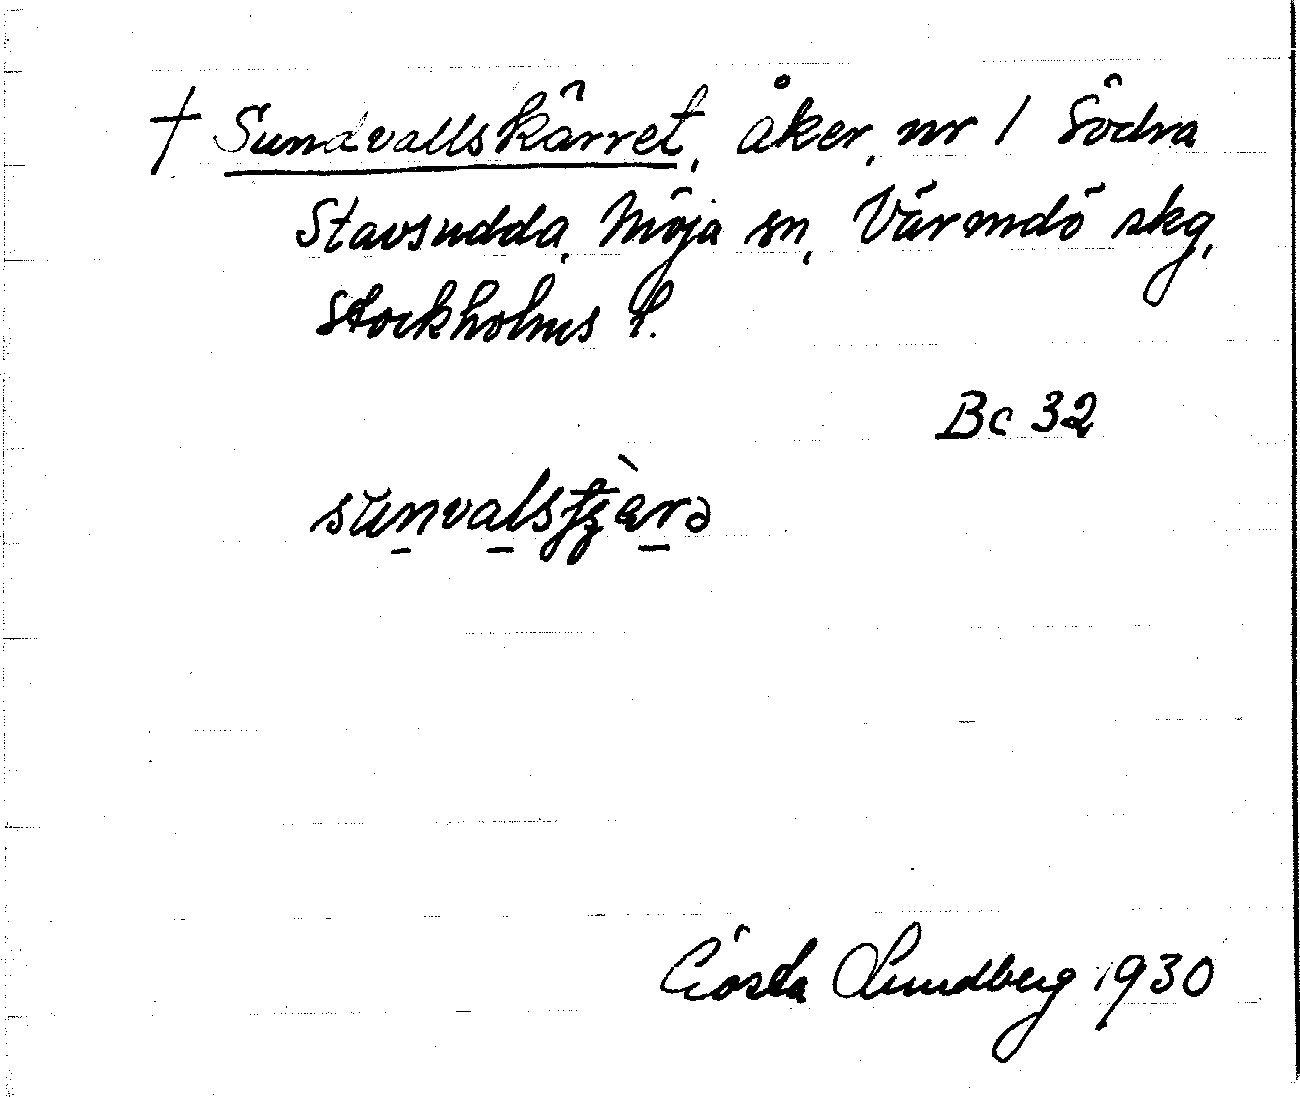 † Sundvallskärret, åker, nr 1 Södra
Stavsudda, Möja sn, Värmdö skg,
Stockholms l.
Bc 32
Gösta Lundberg 1930